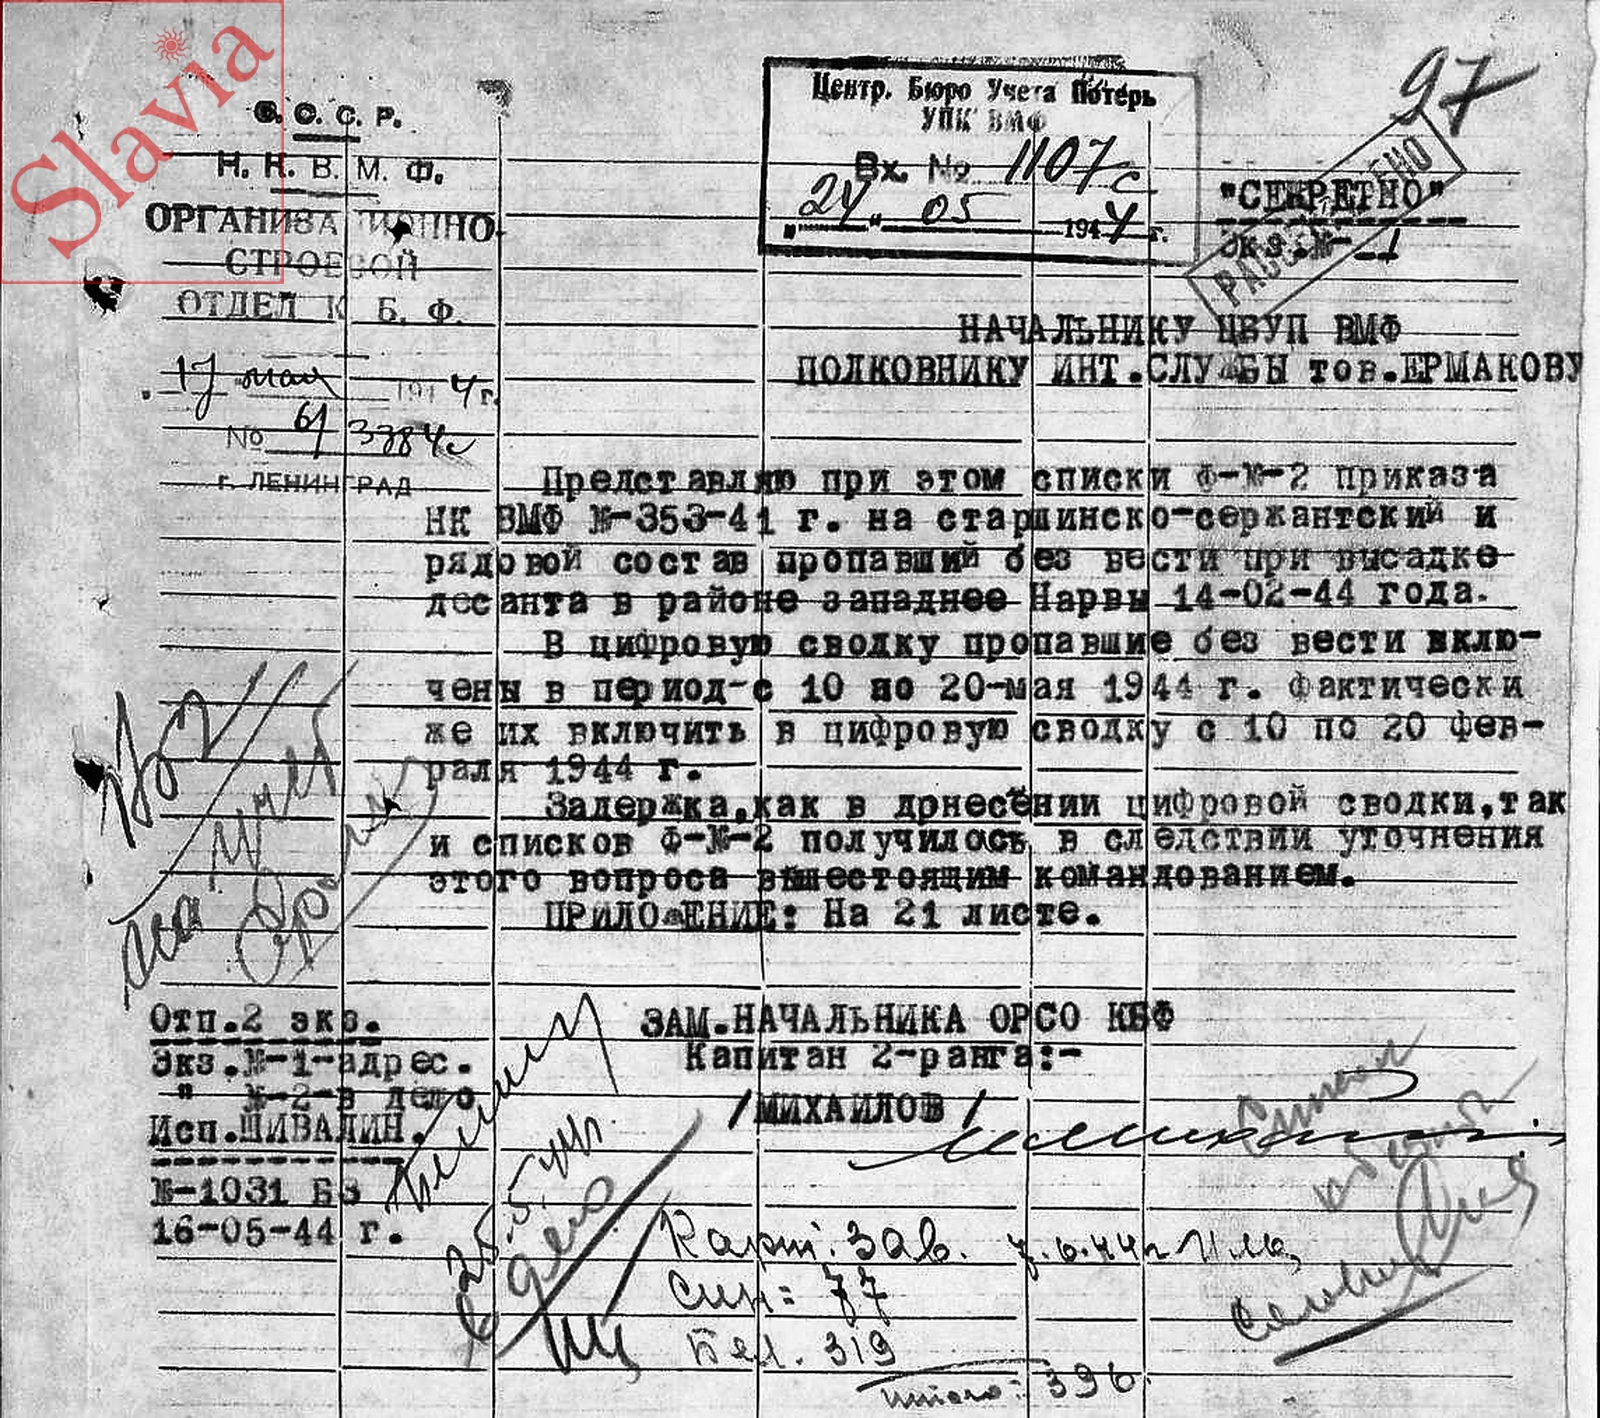 Slavia
С. С. С. Р.
Н. К. В. М. Ф.
ОРГАНИЗАЦИОННО-
СТРОЕВОЙ
ОТДЕЛ К. Б. Ф.
17 мая 1944 г.
№ 61/3384с
г. ЛЕНИНГРАД
Центр. Бюро Учета Потерь
УПК ВМФ
Вх. № 1107с
"24" 05 1944 г.
97
"СЕКРЕТНО"
Экз.№- 1
НАЧАЛЬНИКУ ЦБУП ВМФ
ПОЛКОВНИКУ ИНТ.СЛУЖБЫ тов.ЕРМАКОВУ
Представляю при этом списки Ф-№-2 приказа
НК ВМФ №-353-41 г. на старшинско-сержантский и
рядовой состав пропавший без вести при высадке
десанта в районе западнее Нарвы 14-02-44 года.
В цифровую сводку пропавшие без вести вклю-
чены в период-с 10 по 20-мая 1944 г. фактически
же их включить в цифровую сводку с 10 по 20 фев-
раля 1944 г.
Задержка,как в дрнесении цифровой сводки,так
и списков Ф-№-2 получилось в следствии уточнения
этого вопроса вышестоящим командованием.
ПРИЛОЖЕНИЕ: На 21 листе.
ЗАМ.НАЧАЛЬНИКА ОРСО КБФ
Капитан 2-ранга:-
/МИХАЙЛОВ/
Отп.2 экз.
Экз.№-1-адрес.
" №-2-в дело
Исп.ШИВАЛИН.
№-1031 БЗ
16-05-44 г.
25.5.44г.
В дело
Карт. зав. 7.6.44г
Син= 77
Бел. 319
итого: 396